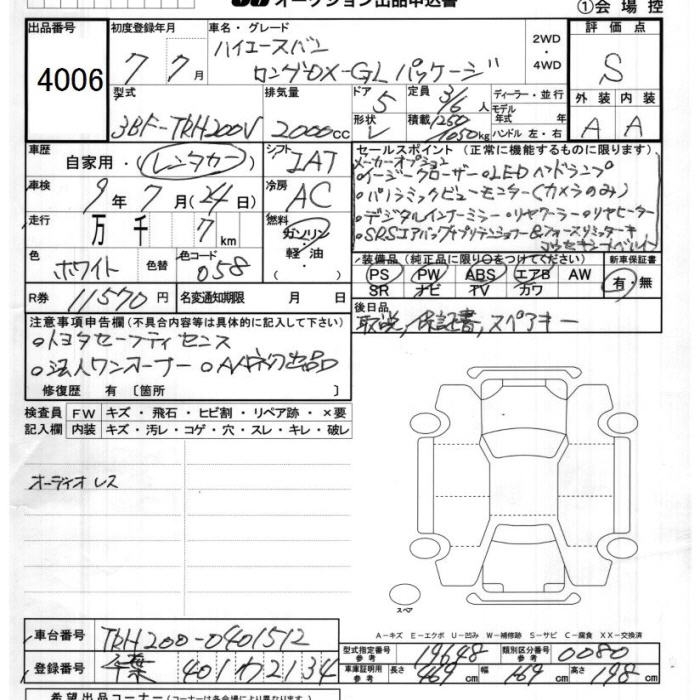 オークション出品申込書
①会場控
出品番号
4006
初度登録年月
7年7月
車名・グレード
ハイエースバン
ロングDX-GLパッケージ
2WD
・
4WD
評価点
S
型式
3BF-TRH200V
排気量
2000cc
ドア
5
形状
V
定員
3/6人
積載
1250
1050kg
ディーラー・並行
モデル
年式 年
ハンドル 左・右
外装 内装
A A
車歴
自家用・レンタカー
シフト
IAT
車検
9年7月(24日)
冷房
AC
走行
万千7km
燃料
ガソリン・
軽・油
色
ホワイト
色替
色コード
058
R券
11570円
名変通知期限 月 日
セールスポイント(正常に機能するものに限ります)
メーカーオプション
○イージークローザー ○LEDヘッドランプ
○パノラミックビューモニター(カメラのみ)
○デジタルインナーミラー ○リヤクーラー ○リヤヒーター
○SRSエアバッグ+プリテンショナー&フォースリミッター付
装備品(純正品に限り○をつけてください)
新車保証書
PS PW ABS エアB AW
SR ナビ TV カワ
有・無
後日品
取説, 保証書, スペアキー
注意事項申告欄(不具合内容等は具体的に記入して下さい)
○トヨタセーフティセンス
○法人ワンオーナー ○AA初出品
修復歴 有〔箇所 〕
検査員
記入欄
FW キズ・飛石・ヒビ割・リペア跡・×要
内装 キズ・汚レ・コゲ・穴・スレ・キレ・破レ
オーディオレス
スペア
A-キズ E-エクボ U-凹み W-補修跡 S-サビ C-腐食 XX-交換済
車台番号
TRH200-0401512
登録番号
千葉 401 わ 2134
型式指定番号
参考
19648
類別区分番号
参考
0080
車庫証明用
参考
長さ 469cm 幅 169cm 高さ 198cm
希望出品コーナー(コーナーは各会場により異なります)